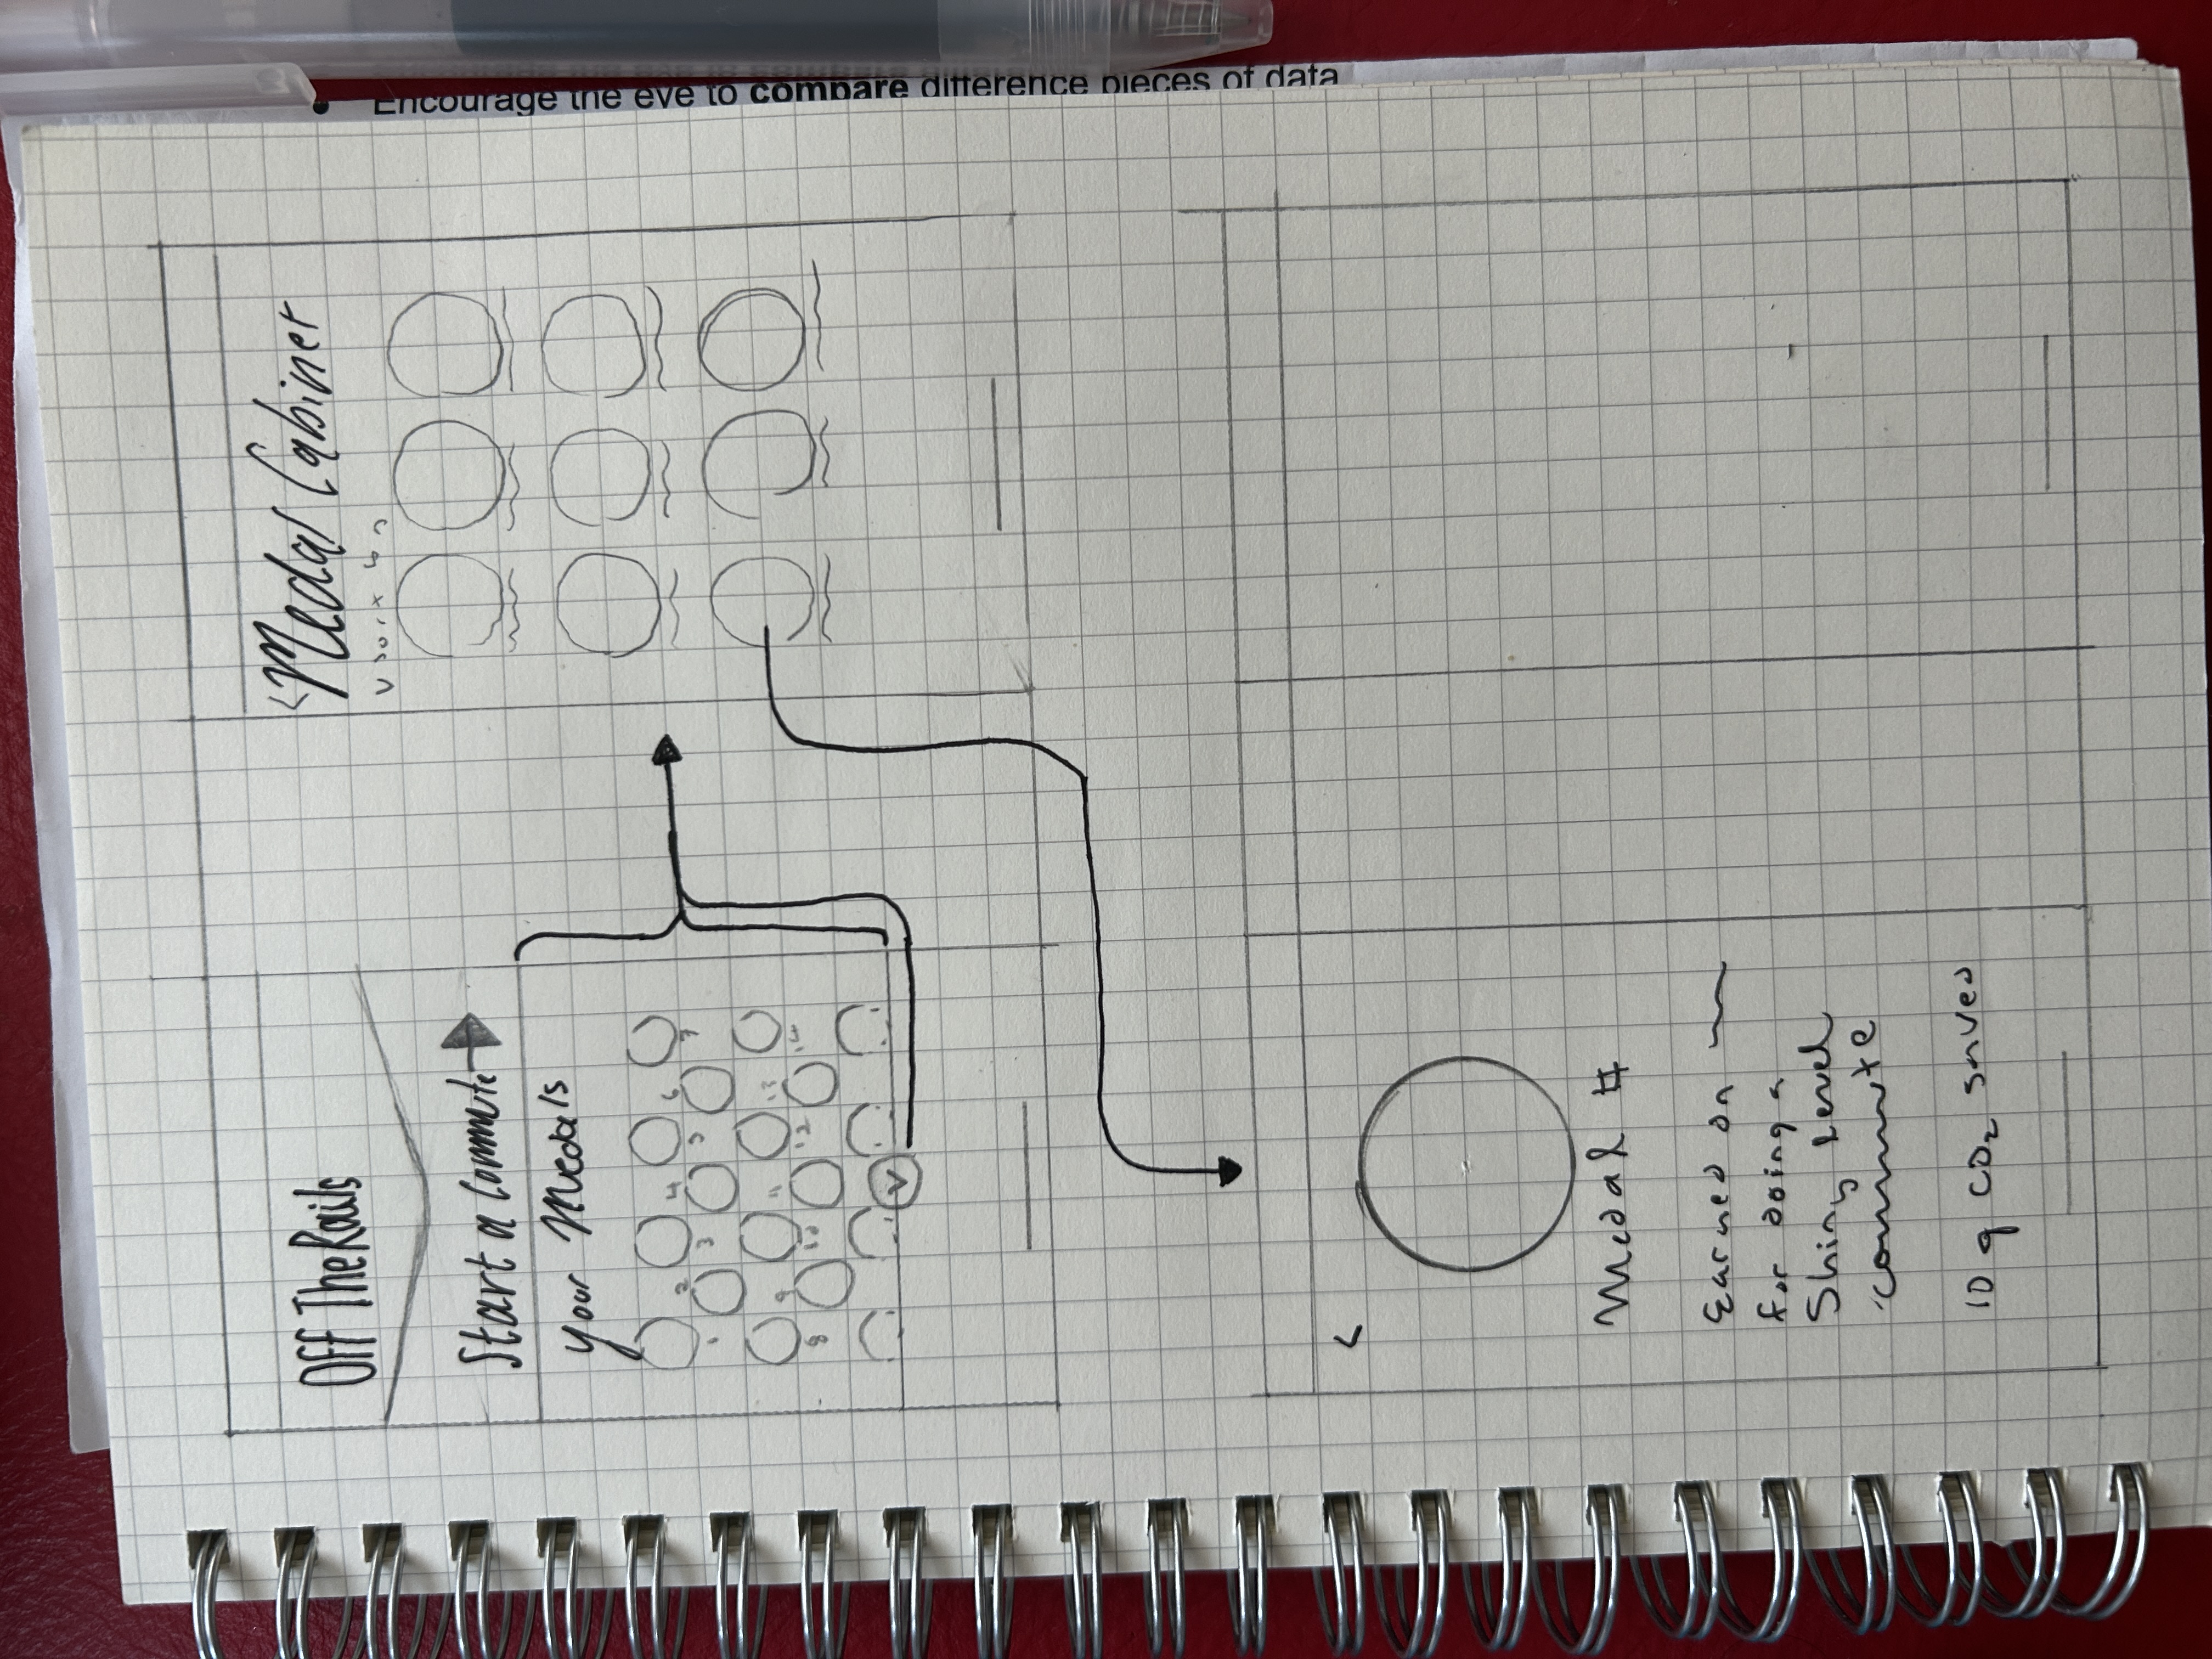 Off The Rails
Start a Commute
your Medals
2 4 6
1 3 5 7
9 11 13
8 10 12 14
V
< Medal Cabinet
V sort by
<
Medal #
Earned on
for doing a
Shiny Level
commute
10 g CO₂ saved
Encourage the eye to compare difference pieces of data